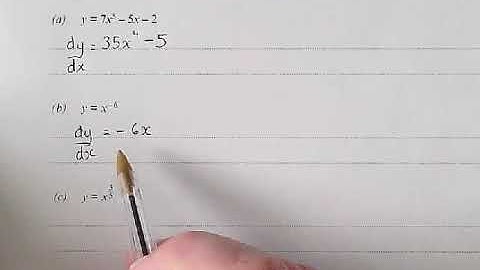 (a) y = 7x⁵ – 5x – 2
dy/dx = 35x⁴ – 5
(b) y = x⁻⁶
dy/dx = – 6x
(c) y = x